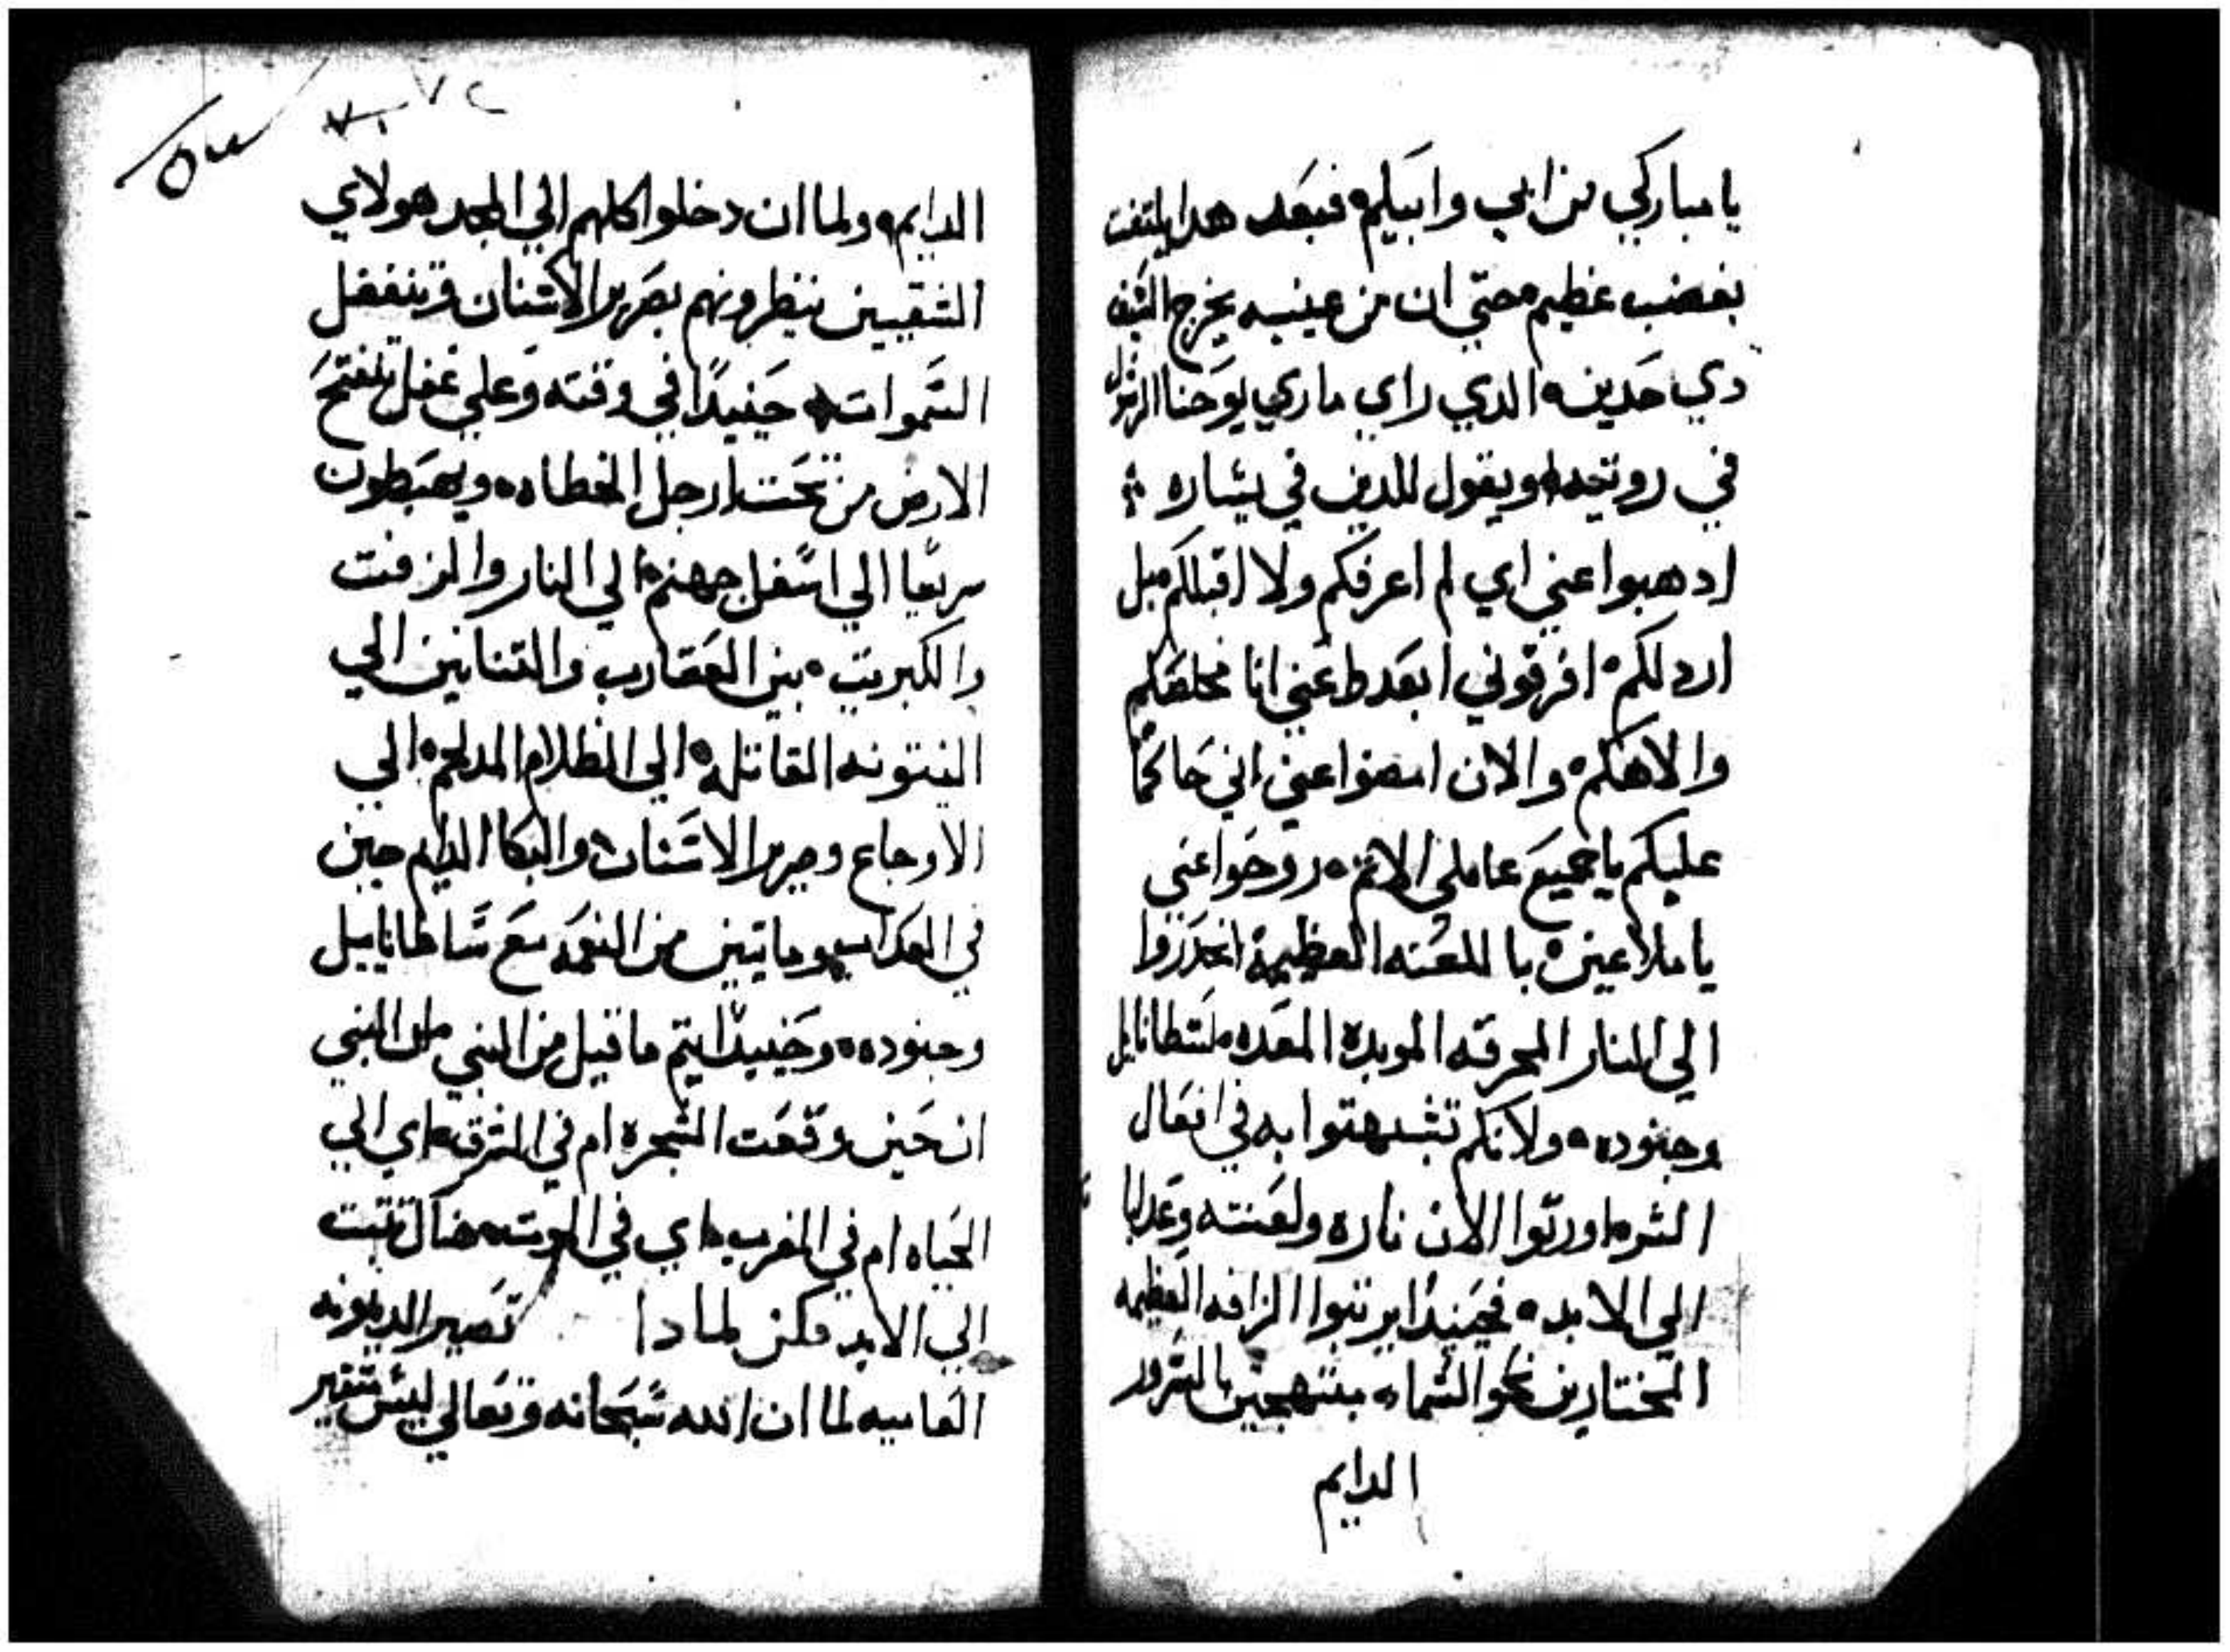 يا مباركي من ابي وابيكم فبعد هدا يلتفت
بغضب عظيم حتي ان من عينيه يخرج السيف
دي حدين الدي راي ماري يوحنا الرسول
في رويته ويقول للدين في يساره
ادهبوا عني اي لم اعرفكم ولا اقبلكم بل
اردلكم افرقوني ابعدكم عني انا مخلصكم
والاهكم والان امضوا عني اني حاكما
عليكم يا جميع عاملي الاتم روحوا عني
يا ملاعين با للعنه العظيمة انحدروا
الي النار المحرقه الموبدة المعده لشطانايل
وجنوده ولانكم تشبهتوا به في افعال
الشر اورتوا الان ناره ولعنته وعدابا
الي الابد فحينيدا يرتبوا الزافه العظيمه
المختارين نحو السما مبتهجين بالسرور
الدايم
٥٣
٧٢
٧١
الدايم ولما ان دخلوا كلهم الي المجد هولاي
الشقيين ينظرونهم بصرير الاسنان وتنغفل
السموات حينيدا في وقته وعلي غفل تنفتح
الارض من تحت ارجل الخطاه ويهبطون
سريعا الي اسفل جهنم الي النار والزفت
والكبريت بين العقارب والتنانين الي
النتونه القاتله الي الظلام المدلهم الي
الاوجاع وصرير الاسنان والبكا الدايم حيين
في العداب ومايتين من النعمه مع ساطانايل
وجنوده وحينيدا يتم ما قيل من النبي
ان حين وقعت الشجره ام في الشرق اي الي
الحياه ام في المغرب اي في الموت هناك تتبت
الي الابد فكن لمادا تصير الدينونه
القاسيه لما ان الله سبحانه وتعالي ليس متغير